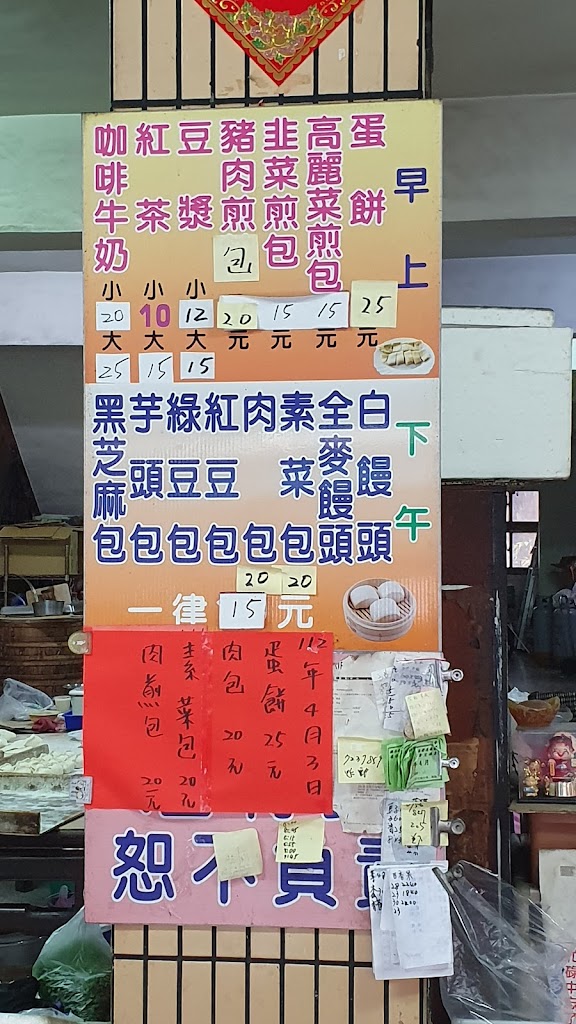 早上
蛋餅
高麗菜煎包
韭菜煎包
豬肉煎包
豆漿
紅茶
咖啡牛奶
25元
15元
15元
20元
小12大15
小10大15
小20大25
下午
白饅頭
全麥饅頭
素菜包
肉包
紅豆包
綠豆包
芋頭包
黑芝麻包
20 20
一律15元
112年4月3日
蛋餅 25元
肉包 20元
素菜包 20元
肉煎包 20元
恕不負責